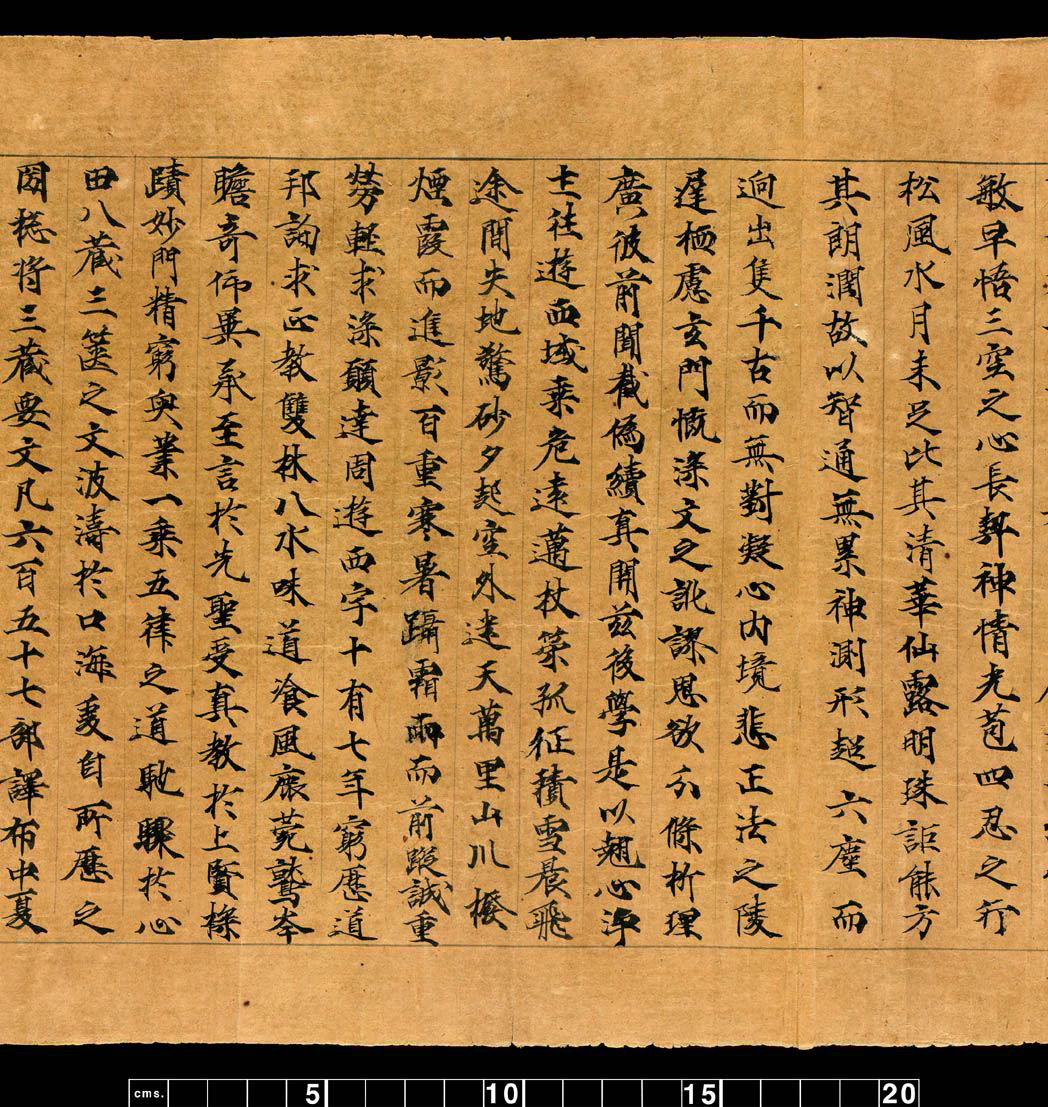 敏早悟三空之心長契神情先苞四忍之行
松風水月未足比其清華仙露明珠詎能方
其朗潤故以智通無累神測形超六塵而
迥出隻千古而無對凝心內境悲正法之陵
遲栖慮玄門慨深文之訛謬思欲分條析理
廣彼前聞截偽續真開茲後學是以翹心淨
土往遊西域乘危遠邁杖策孤征積雪晨飛
途間失地驚砂夕起空外迷天萬里山川撥
煙霞而進影百重寒暑躡霜雨而前蹤誠重
勞輕求深願達周遊西宇十有七年窮歷道
邦詢求正教雙林八水味道飡風鹿菀鷲峯
瞻奇仰異承至言於先聖受真教於上賢探
賾妙門精窮奧業一乘五律之道馳驟於心
田八藏三篋之文波濤於口海爰自所歷之
國總將三藏要文凡六百五十七部譯布中夏
cms. 5 10 15 20